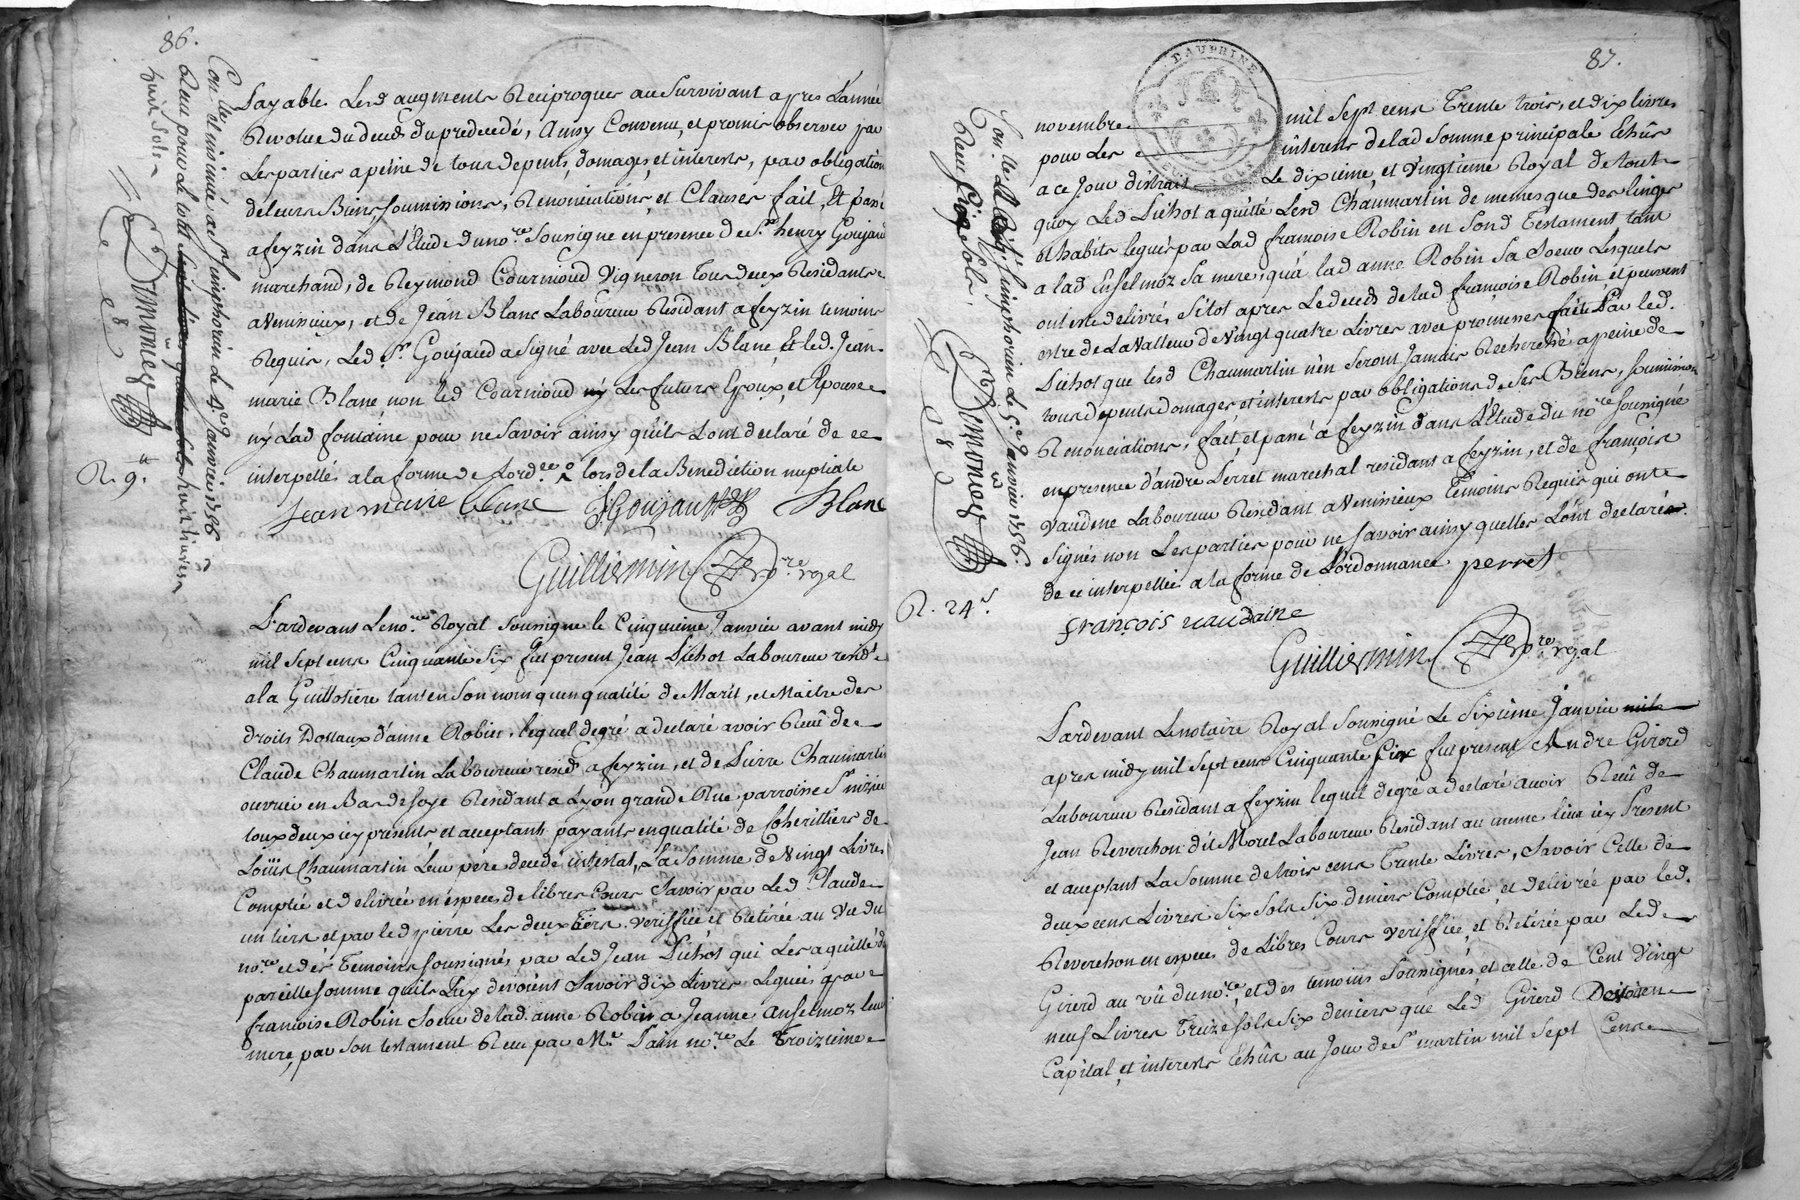 86.
payable. Lesd augments Reciproques au Survivant apres L'année
Revolue du deceds du predecedé, Ainsy Convenu, et promis observer par
Les parties a peine de tous depents, domages, et interests, par obligation
de leurs Biens, soumissions, Renonciations, et Clauses fait, Et passé
a feyzin dans L'Etude du nore. Soussigne en presence de Sr. henry Goujaud
marchand, de Reymond Courmioud Vigneron tous deux Residants
a Venissieux, et de Jean Blanc Laboureur Residant a feyzin temoins
Requis, Led. Sr. Goujaud a Signé avec Led Jean Blanc, et led. Jean
marie Blanc, non led Courmioud ny Les futurs Epoux, et Epouse
ny Lad fontaine pour ne savoir ainsy quils L'ont declaré de ce
interpellés a la forme de Lordce. lors de la Benediction nuptiale
R. 9.
jean marie blanc J Goujaud Blanc
Guilliermin nore. royal
Con.lle et insinué a St Simphorien le 9e Janvier 1756
Reçu pour le tout huit livres
huit sols
Pardevant Le nore. Royal soussigne le Cinquieme Janvier avant midy
mil sept cens Cinquante six fut present Jean Pichot Laboureur residt.
a la Guillotiere tant en Son nom qu'en qualité de Marit, et Maitre des
droits Dottaux d'anne Robin, lequel degré a declaré avoir Reçû de
Claude Chaumartin Laboureur resid. a feyzin, et de Pierre Chaumartin
ouvrier en Bas de soye Residant a Lyon grande Rue parroisse St. nizier
tous deux icy presents, et acceptants payants en qualité de Coheritiers de
Loüis Chaumartin Leur pere decedé intestat, La somme de Vingt Livres
Comptée et delivrée en éspeces de libres Cours Savoir par Led Claude
un tiers et par led pierre Les deux tiers veriffiée et Retirée au Vu du
nore. et des Temoins soussignés par Led Jean Pichot qui Les a quitté de
pareille somme quils Luy devoient Savoir dix Livres Leguées par
françoise Robin Soeur de lad. anne Robin a Jeanne Anselmoz leur
mere, par son testament Reçu par Me. Pain nore. Le Troizieme
87.
DAUPHINE
novembre mil sept cens Trente trois, et dix livres
pour Les interests de lad Somme principale Echûs
a ce Jour distrait Le dixieme, et Vingtieme Royal de tout
quoy Led Pichot a quitté Lesd Chaumartin de memes que des linges
et habits legués par Lad françoise Robin en Sond Testament tant
a lad Anselmoz Sa mere, qu'a lad anne Robin Sa Soeur Lesquels
ont esté delivré, Sitot apres Le deceds de lad françoise Robin, et peuvent
estre de La Valleur de Vingt quatre Livres avec promesses faite Par led.
Pichot que lesd Chaumartin n'en Seront Jamais Recherché a peine de
tous depents domages, et interests par obligations de Ses Biens, soumission
Renonciations, fait, et passé a feyzin dans L'Etude du nore soussigné
en presence d'andré Perret marechal residant a feyzin, et de françois
Vaudene Laboureur Residant a Venissieux Temoins Requis qui ont
signés non Les parties pour ne savoir ainsy quelles L'ont declarée
de ce interpellée a la forme de L'ordonnance perret
R. 24s.
françois vaudaine
Guilliermin nore. royal
Con. lle a St Simphorien Le 5e Janvier 1756.
Reçu sols.
Pardevant Le notaire Royal soussigné Le Sixieme Janvier
apres midy mil sept cens Cinquante Six fut present Andre Girerd
Laboureur Residant a feyzin lequel degré a declaré avoir Reçû de
Jean Reverchon dit Morel Laboureur Residant au meme lieu icy Present
et acceptant La Somme de trois cens Trente Livres, Savoir Celle de
deux cens Livres Six Sols Six deniers Comptée, et delivrée par led.
Reverchon en especes de Libres Cours veriffiée, et Retirée par Led
Girerd au vû du nore, et des temoins Soussignés, et celle de Cent Vingt
neuf Livres Treize Sols Six deniers que Led Girerd Devoit en
Capital, et interests Echûs au Jour de St martin mil sept Cens